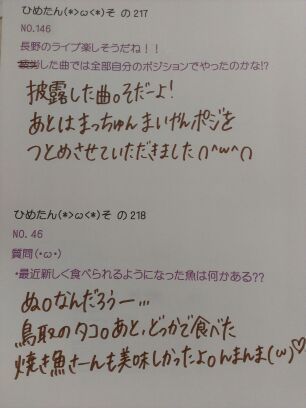 ひめたん(*>ω<*)そ の217
NO.146
長野のライブ楽しそうだね！！
した曲では全部自分のポジションでやったのかな!?
披露した曲。そだーよ！
あとはまっちゅん まいやんポジを
つとめさせていただきました∩^ω^∩
ひめたん(*>ω<*)そ の218
NO. 46
質問(・ω・)
・最近新しく食べられるようになった魚は何かある??
ぬ。なんだろうー…
鳥取のタコ。あと、どっかで食べた
焼き魚さーんも美味しかったよ。んまんま(ω)♡